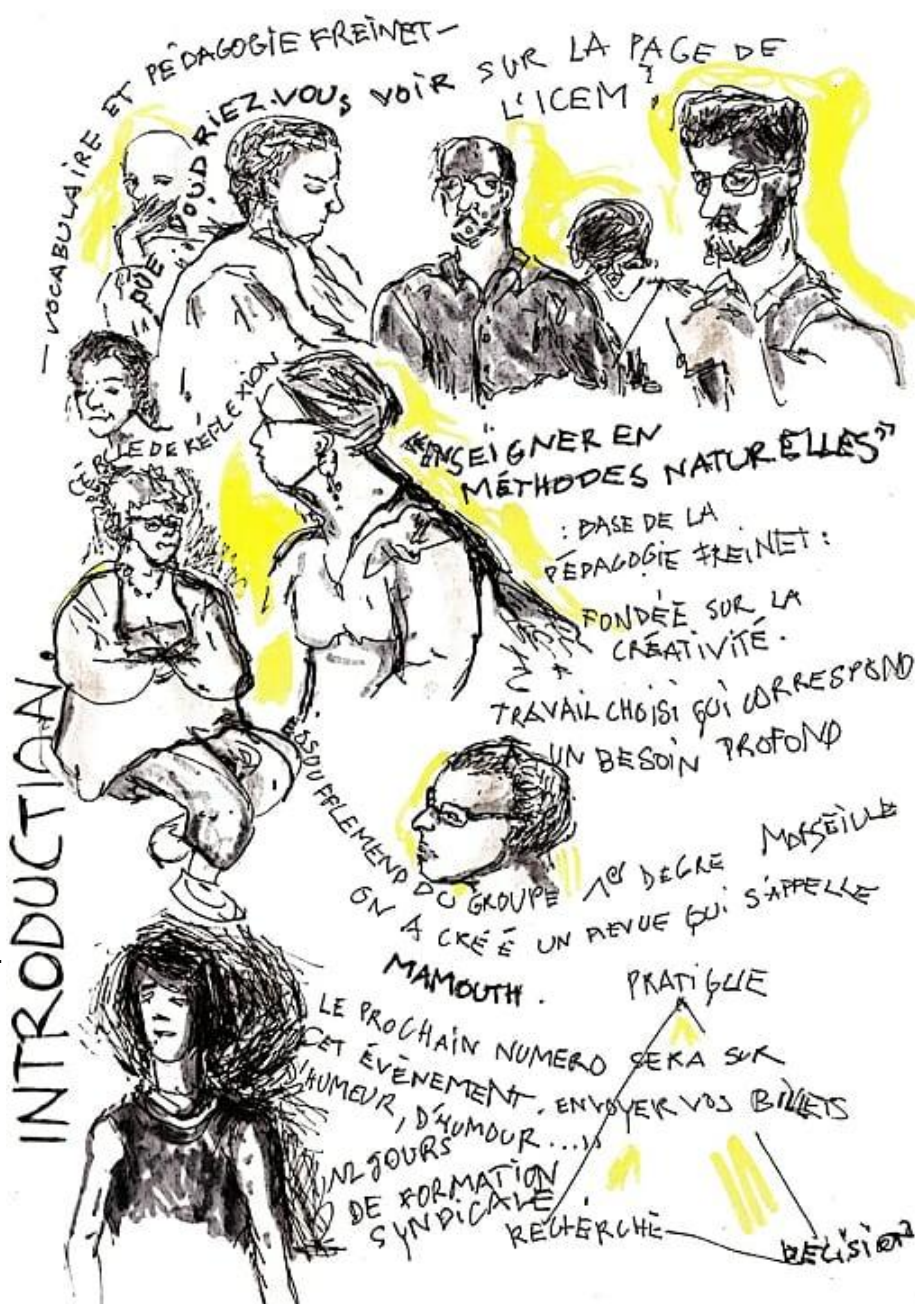 — VOCABULAIRE ET PÉDAGOGIE FREINET —
QUE VOUDRIEZ-VOUS VOIR SUR LA PAGE DE
L'ICEM ?
CERCLE DE RÉFLEXION
"ENSEIGNER EN
MÉTHODES NATURELLES"
: BASE DE LA
PÉDAGOGIE FREINET :
FONDÉE SUR LA
CRÉATIVITÉ.
TRAVAIL CHOISI QUI CORRESPOND
UN BESOIN PROFOND
INTRODUCTION.
ESSOUFFLEMEND DU GROUPE 1er DEGRÉ MARSEILLE
ON A CRÉÉ UN REVUE QUI S'APPELLE
MAMOUTH.
LE PROCHAIN NUMERO SERA SUR
CET ÉVÈNEMENT. ENVOYER VOS BILLETS
D'HUMEUR, D'HUMOUR...
12 JOURS
DE FORMATION
SYNDICALE
PRATIQUE
RECHERCHE
DÉCISION